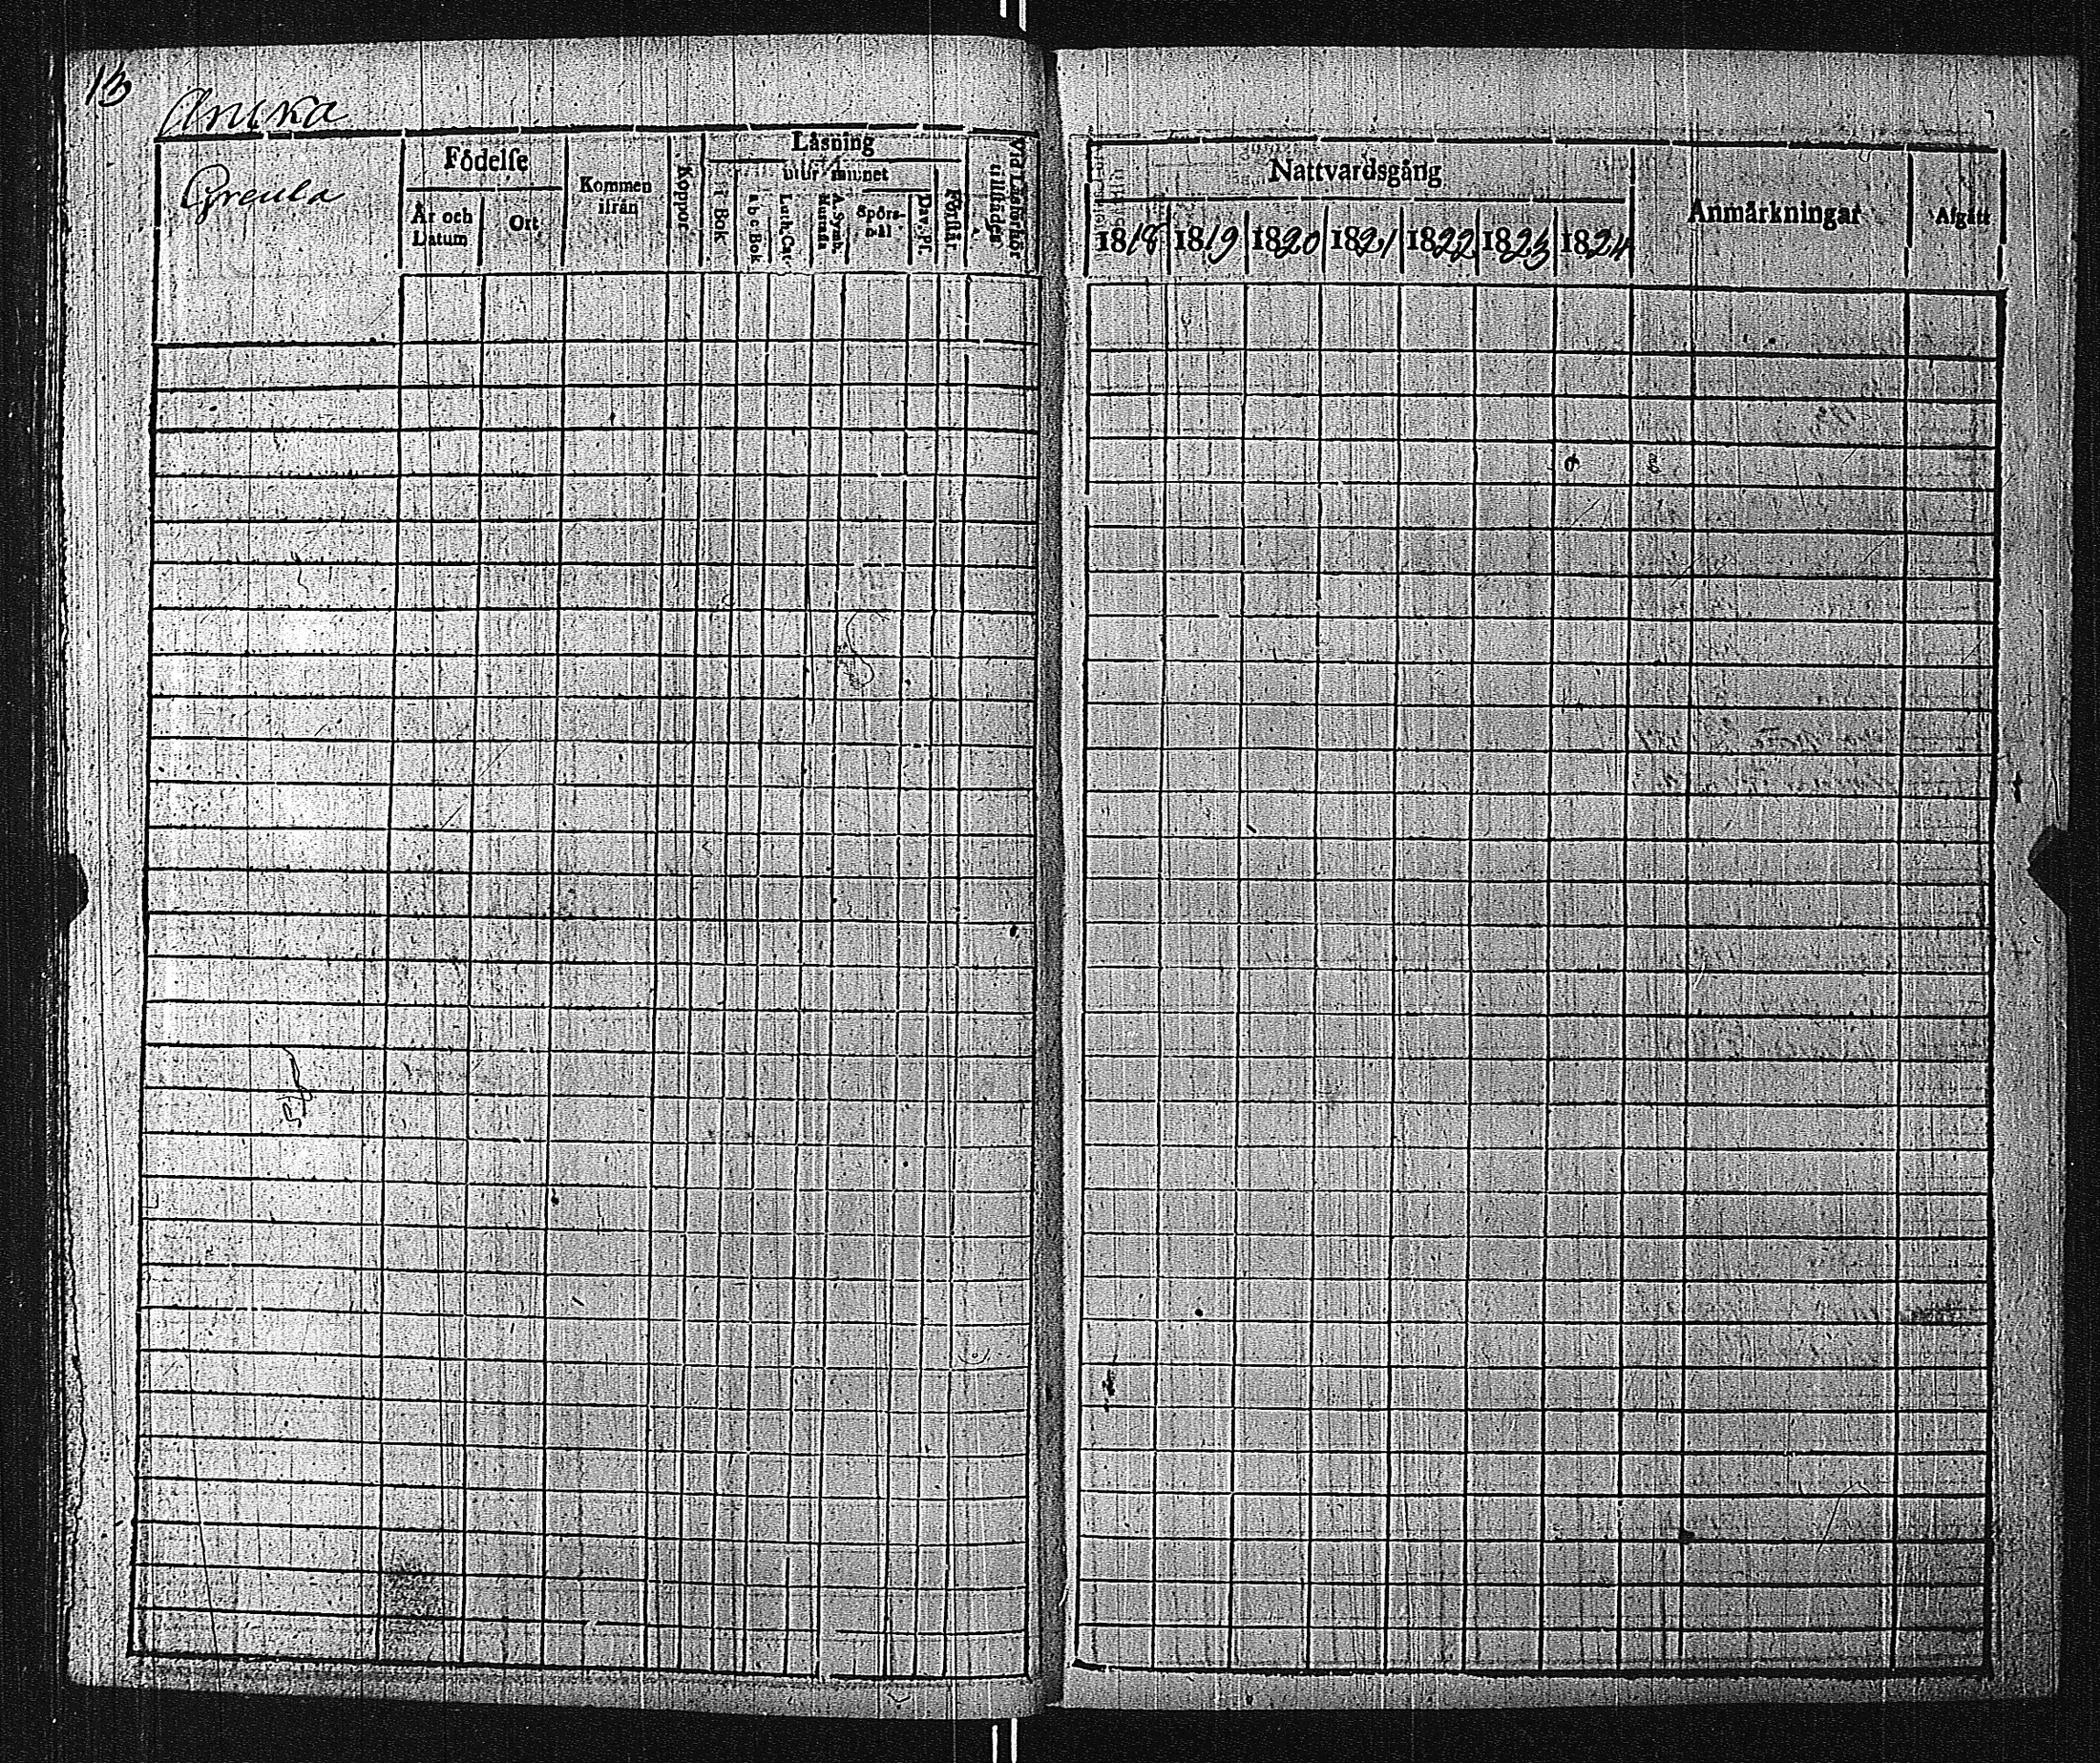 13
Anika
Greula
Födelse
År och Datum
Ort
Kommen ifrån
Koppor
Läsning
utur minnet
i Bok
a b c Bok
Luth. Cat.
A. Symb. Hustafl.
Spörsmål
Dav. Ps.
Förstår.
Vid Läsförhör tillstädes
Nattvardsgång
1818 1819 1820 1821 1822 1823 1824
Anmärkningar
Afgått